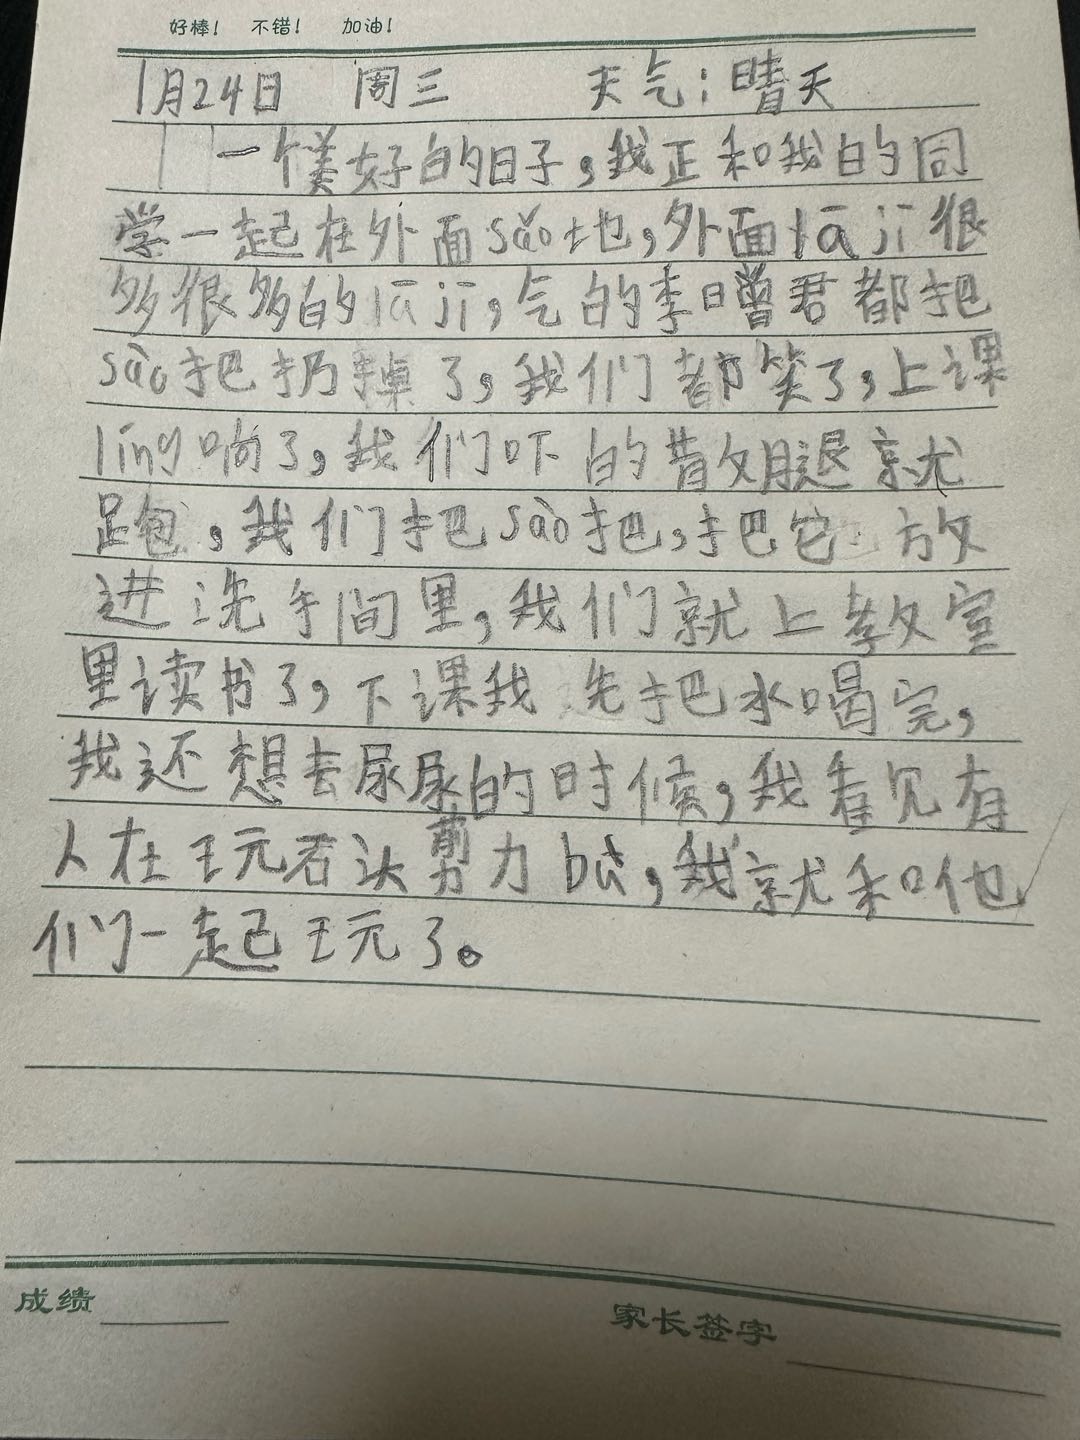 好棒! 不错! 加油!
1月24日 周三 天气:晴天
一个美好的日子,我正和我的同
学一起在外面sǎo地,外面lā jī很
多很多的lā jī,气的李曾君都把
sào把扔掉了,我们都笑了,上课
líng响了,我们吓的散腿就
跑,我们把sào把,把它放
进洗手间里,我们就上教室
里读书了,下课我先把水喝完,
我还想去尿尿的时候,我看见有
人在王元石头剪刀bù,我就和他
们一起王元了。
成绩
家长签字